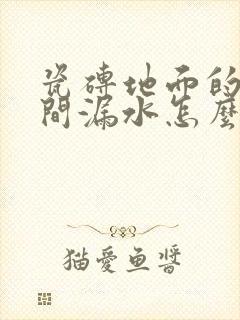 瓷磚地面的
間漏水怎麼
猫愛魚醬